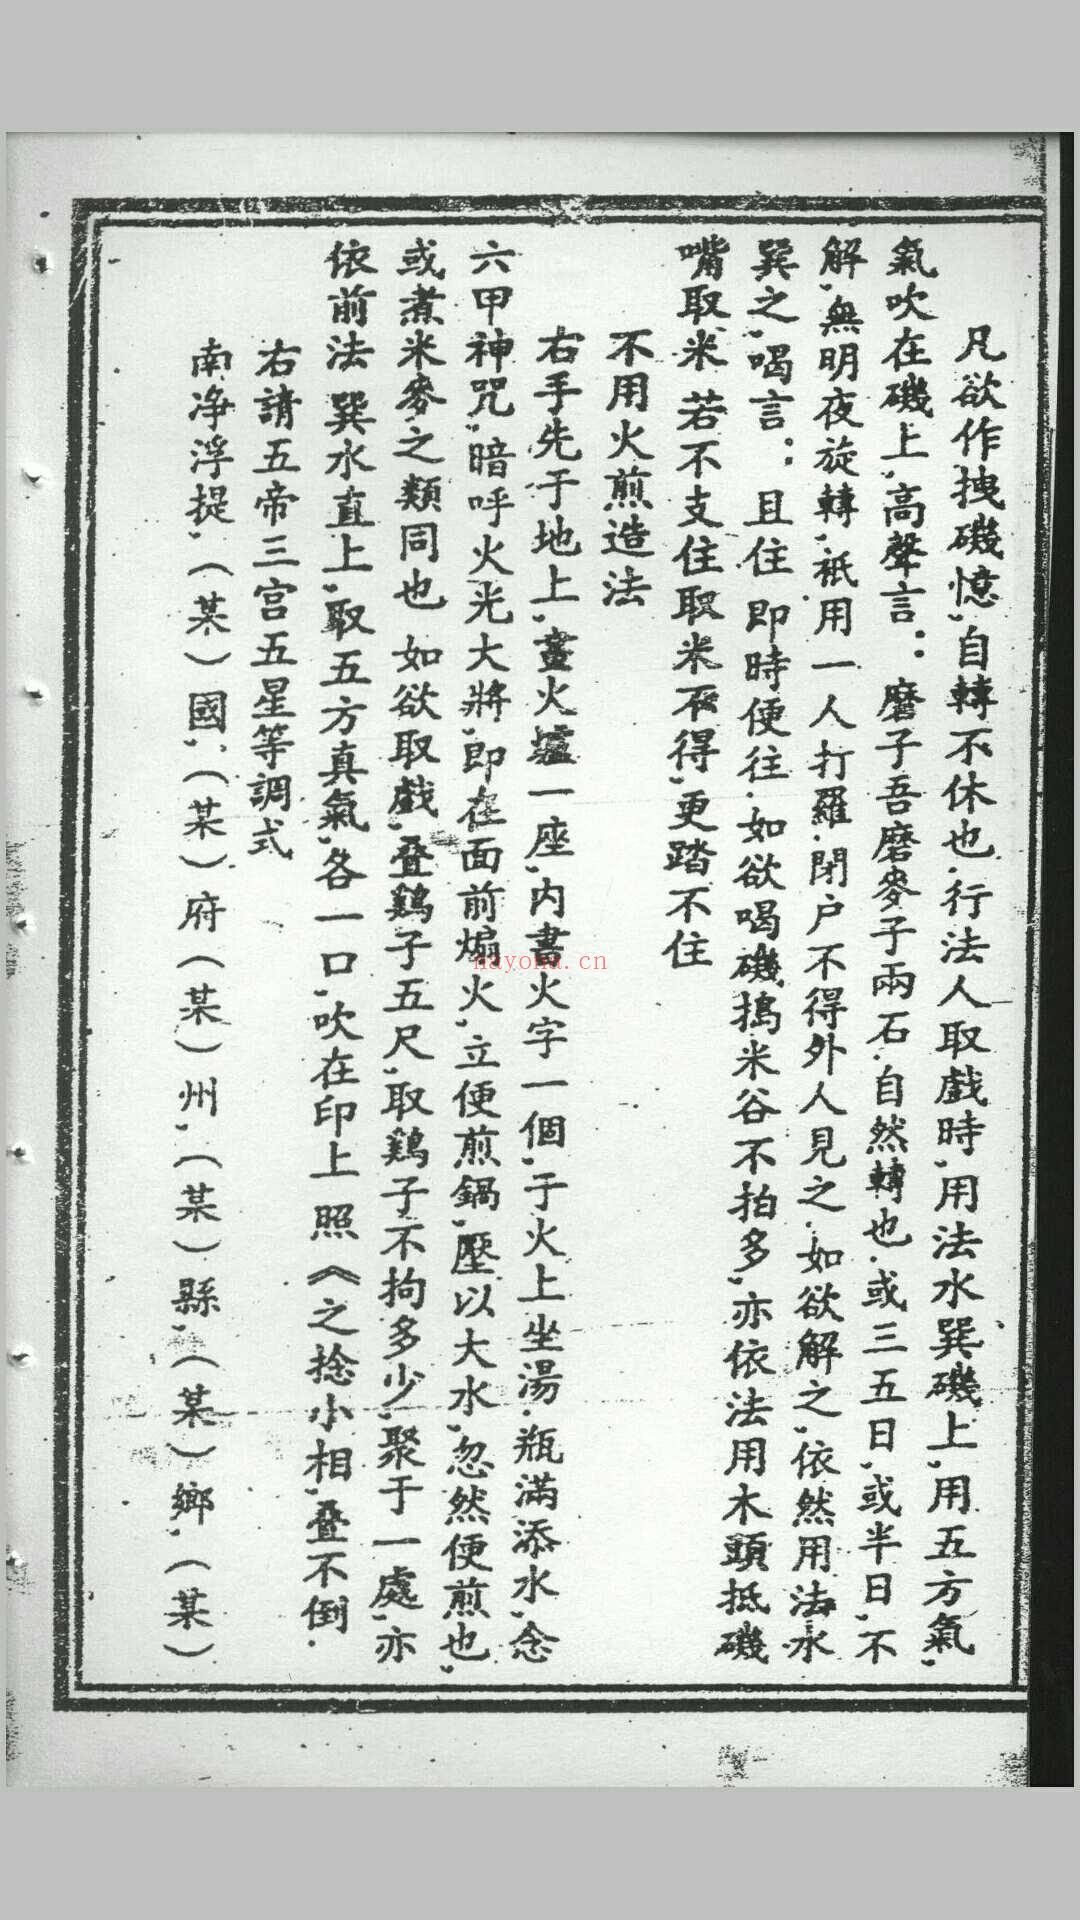 凡欲作拽磯憶，自轉不休也．行法人取戲時，用法水巽磯上，用五方氣，
氣吹在磯上，高聲言：磨子吾磨麥子兩石．自然轉也．或三五日，或半日，不
解，無明夜旋轉，祇用一人打羅．閉户不得外人見之．如欲解之，依然用法水
巽之，喝言：且住即時便往．如欲喝磯搗米谷不拍多，亦依法用木頭抵磯
嘴取米若不支住取米不得，更踏不住
不用火煎造法
右手先于地上，畫火爐一座，内書火字一個，于火上坐湯．瓶滿添水，念
六甲神咒，暗呼火光大將，即在面前煽火，立便煎鍋，壓以大水，忽然便煎也，
或煮米麥之類同也如欲取戲，叠鷄子五尺，取鷄子不拘多少，聚于一處，亦
依前法巽水直上，取五方真氣，各一口，吹在印上照《之捻小相，叠不倒．
右請五帝三宫五星等調式
南净浮提，（某）國，（某）府（某）州，（某）縣，（某）鄉，（某）
nayona.cn